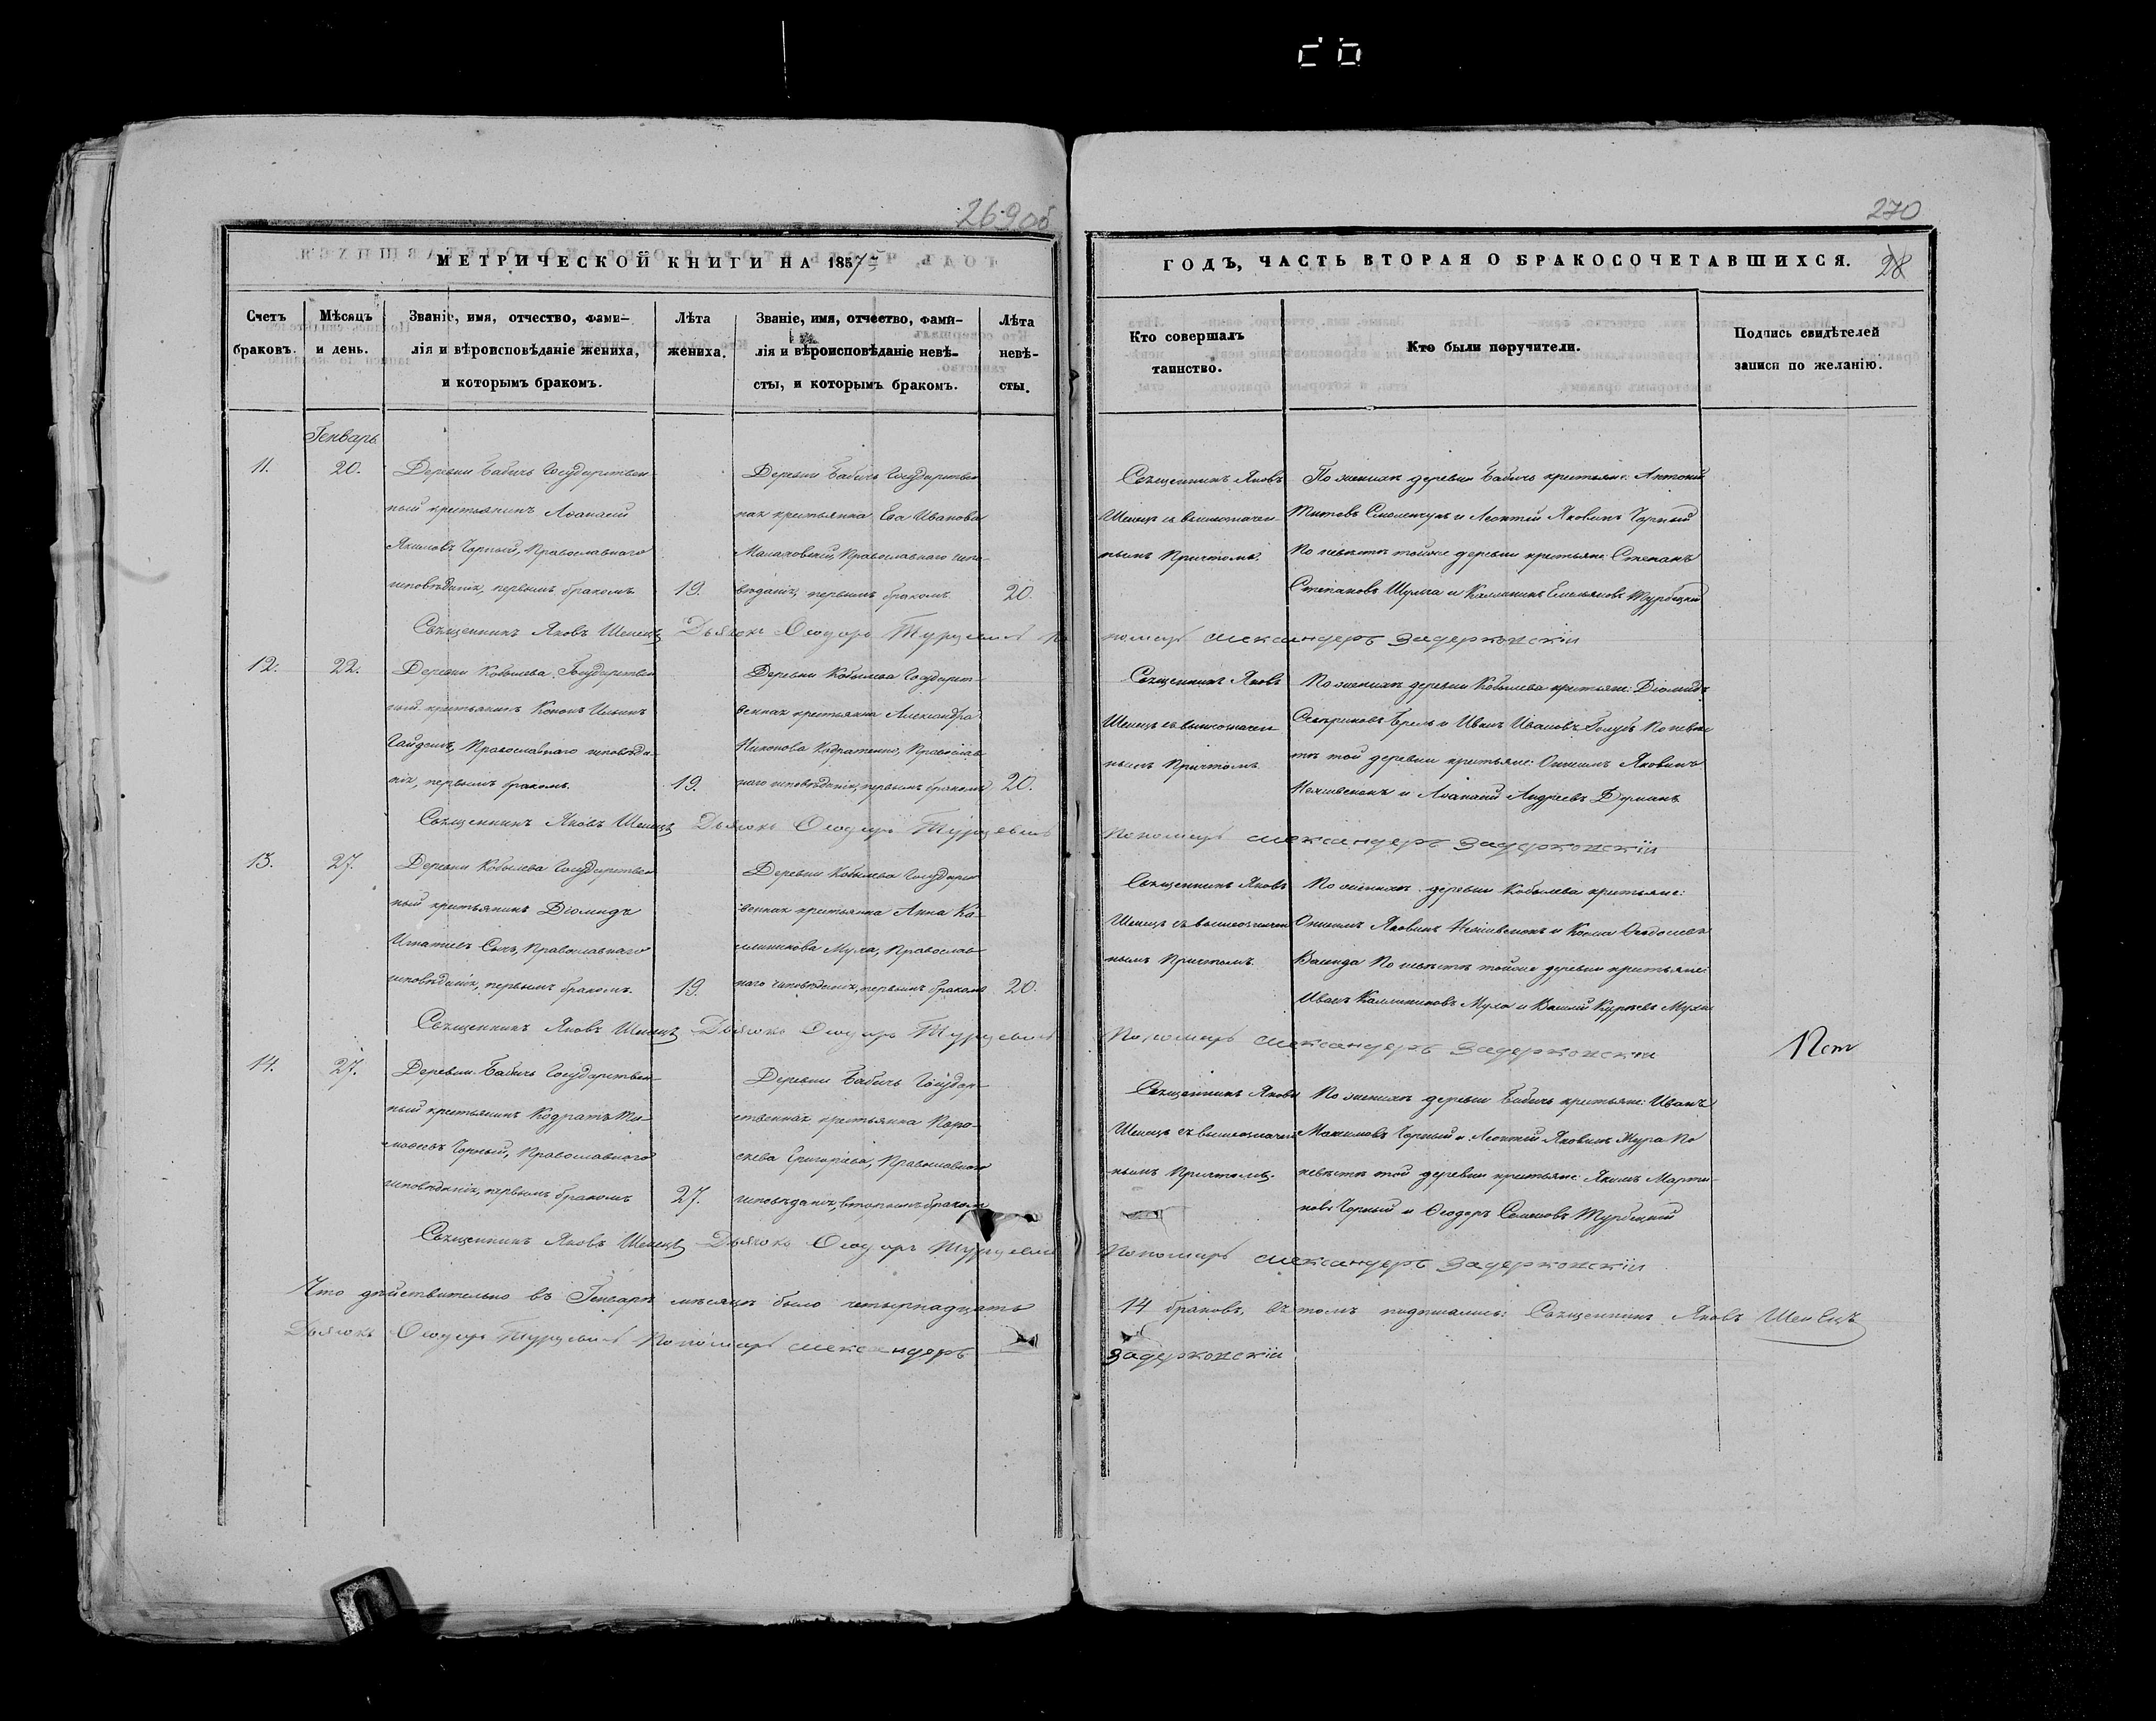 269об
270
МЕТРИЧЕСКОЙ КНИГИ НА 1857й
ГОДЪ, ЧАСТЬ ВТОРАЯ О БРАКОСОЧЕТАВШИХСЯ.
28
Счетъ браковъ.
Мѣсяцъ и день.
Званіе, имя, отчество, фами-
лія и вѣроисповѣданіе жениха,
и которымъ бракомъ.
Лѣта жениха.
Званіе, имя, отчество, фами-
лія и вѣроисповѣданіе невѣ-
сты, и которымъ бракомъ.
Лѣта невѣ-
сты.
Кто совершалъ
таинство.
Кто были поручители.
Подпись свидѣтелей
записи по желанію.
Генварь
11.
20.
Деревни Бабичъ Государствен
ный крестьянинъ Аѳанасій
Якимовъ Чорный, Православнаго
исповѣданія, первымъ бракомъ.
19.
Деревни Бабичъ Государствен
ная крестьянка Ева Иванова
Православнаго испо-
вѣданія, первымъ бракомъ.
20.
Священникъ Яковъ
Шенецъ съ вышеозначен-
нымъ Причтомъ.
По женихѣ деревни Бабичъ крестьяне: Антоній
Титовъ и Леонтій Яковинъ Чорный
По невѣстѣ тойже деревни крестьяне: Степанъ
Степановъ Шульга и Емельяновъ Турбецкій
Священникъ Яковъ Шенецъ Дьячокъ Ѳеодоръ Турцевичъ По
номарь Александеръ Задерковскій
12.
22.
Деревни Кобылева Государствен
ный крестьянинъ Кононъ Ильинъ
Православнаго исповѣда-
нія, первымъ бракомъ.
19.
Деревни Кобылева Государст-
венная крестьянка Александра
Никонова Кодратенко, Православ
наго исповѣданія, первымъ бракомъ
20.
Священникъ Яковъ
Шенецъ съ вышеозначен
нымъ Причтомъ.
По женихѣ деревни Кобылева крестьяне: Діомидъ
и Иванъ Ивановъ Голубъ По невѣс
тѣ той деревни крестьяне: Онисимъ Яковинъ
и Аѳанасій Андреевъ Дерманъ
Священникъ Яковъ Шенецъ Дьячокъ Ѳеодоръ Турцевичъ
Пономарь Александеръ Задерковскій
13.
27.
Деревни Кобылева Государствен
ный крестьянинъ Діомидъ
Игнатіевъ Православнаго
исповѣданія, первымъ бракомъ.
19.
Деревни Кобылева Государст
венная крестьянка Анна Ка-
линикова Муха, Православ
наго исповѣданія, первымъ бракомъ
20.
Священникъ Яковъ
Шенецъ съ вышеозначен
нымъ Причтомъ.
По женихѣ деревни Кобылева крестьяне:
Онисимъ Яковинъ и Косма Ѳеодосіевъ
По невѣстѣ тойже деревни крестьяне:
Иванъ Каллиниковъ Муха и Василій Муха
Священникъ Яковъ Шенецъ Дьячокъ Ѳеодоръ Турцевичъ
Пономарь Александеръ Задерковскій
14.
27.
Деревни Бабичъ Государствен-
ный крестьянинъ Кодратъ Ти-
моѳеевъ Чорный, Православного
исповѣданія, первымъ бракомъ
27.
Деревни Бабичъ Государ-
ственная крестьянка Паро-
скева Григоріева, Православного
исповѣданія, вторымъ бракомъ
Священникъ Яковъ
Шенецъ съ вышеозначен
нымъ Причтомъ.
По женихѣ деревни Бабичъ крестьяне: Иванъ
Максимовъ Чорный и Леонтій Яковинъ Жура По
невѣстѣ той деревни крестьяне: Якимъ Марти-
новъ Чорный и Ѳеодоръ Семеновъ Турбецкій
Священникъ Яковъ Шенецъ Дьячокъ Ѳеодоръ Турцевичъ
Пономарь Александеръ Задерковскій
Что дѣйствительно въ Генварѣ мѣсяцѣ было четырнадцать
14 браковъ, въ томъ подписались: Священникъ Яковъ Шенецъ
Дьячокъ Ѳеодоръ Турцевичъ Пономарь Александеръ
Задерковскій